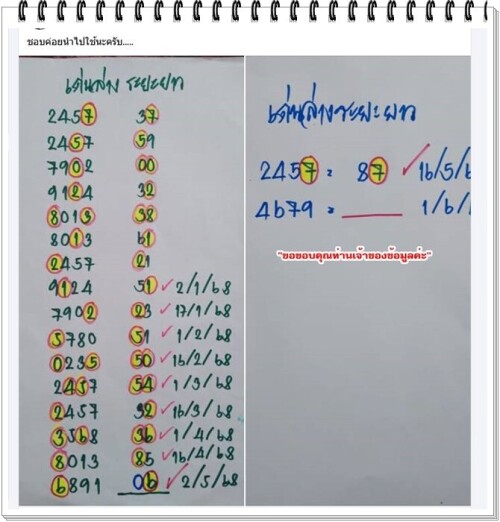 ชอบค่อยนำไปใช้นะครับ.....
เด่นล่าง ระยะยาว
2457 37
2457 59
7902 00
9124 32
8013 38
8013 61
2457 21
9124 51 ✓ 2/1/68
7902 23 ✓ 17/1/68
5780 51 ✓ 1/2/68
0235 50 ✓ 16/2/68
2457 54 ✓ 1/3/68
2457 32 ✓ 16/3/68
3568 36 ✓ 1/4/68
8013 85 ✓ 16/4/68
6891 06 ✓ 2/5/68
เด่นล่างระยะยาว
2457 = 87 ✓ 16/5/6
4679 = ____ 1/6/
"ขอขอบคุณท่านเจ้าของข้อมูลค่ะ"